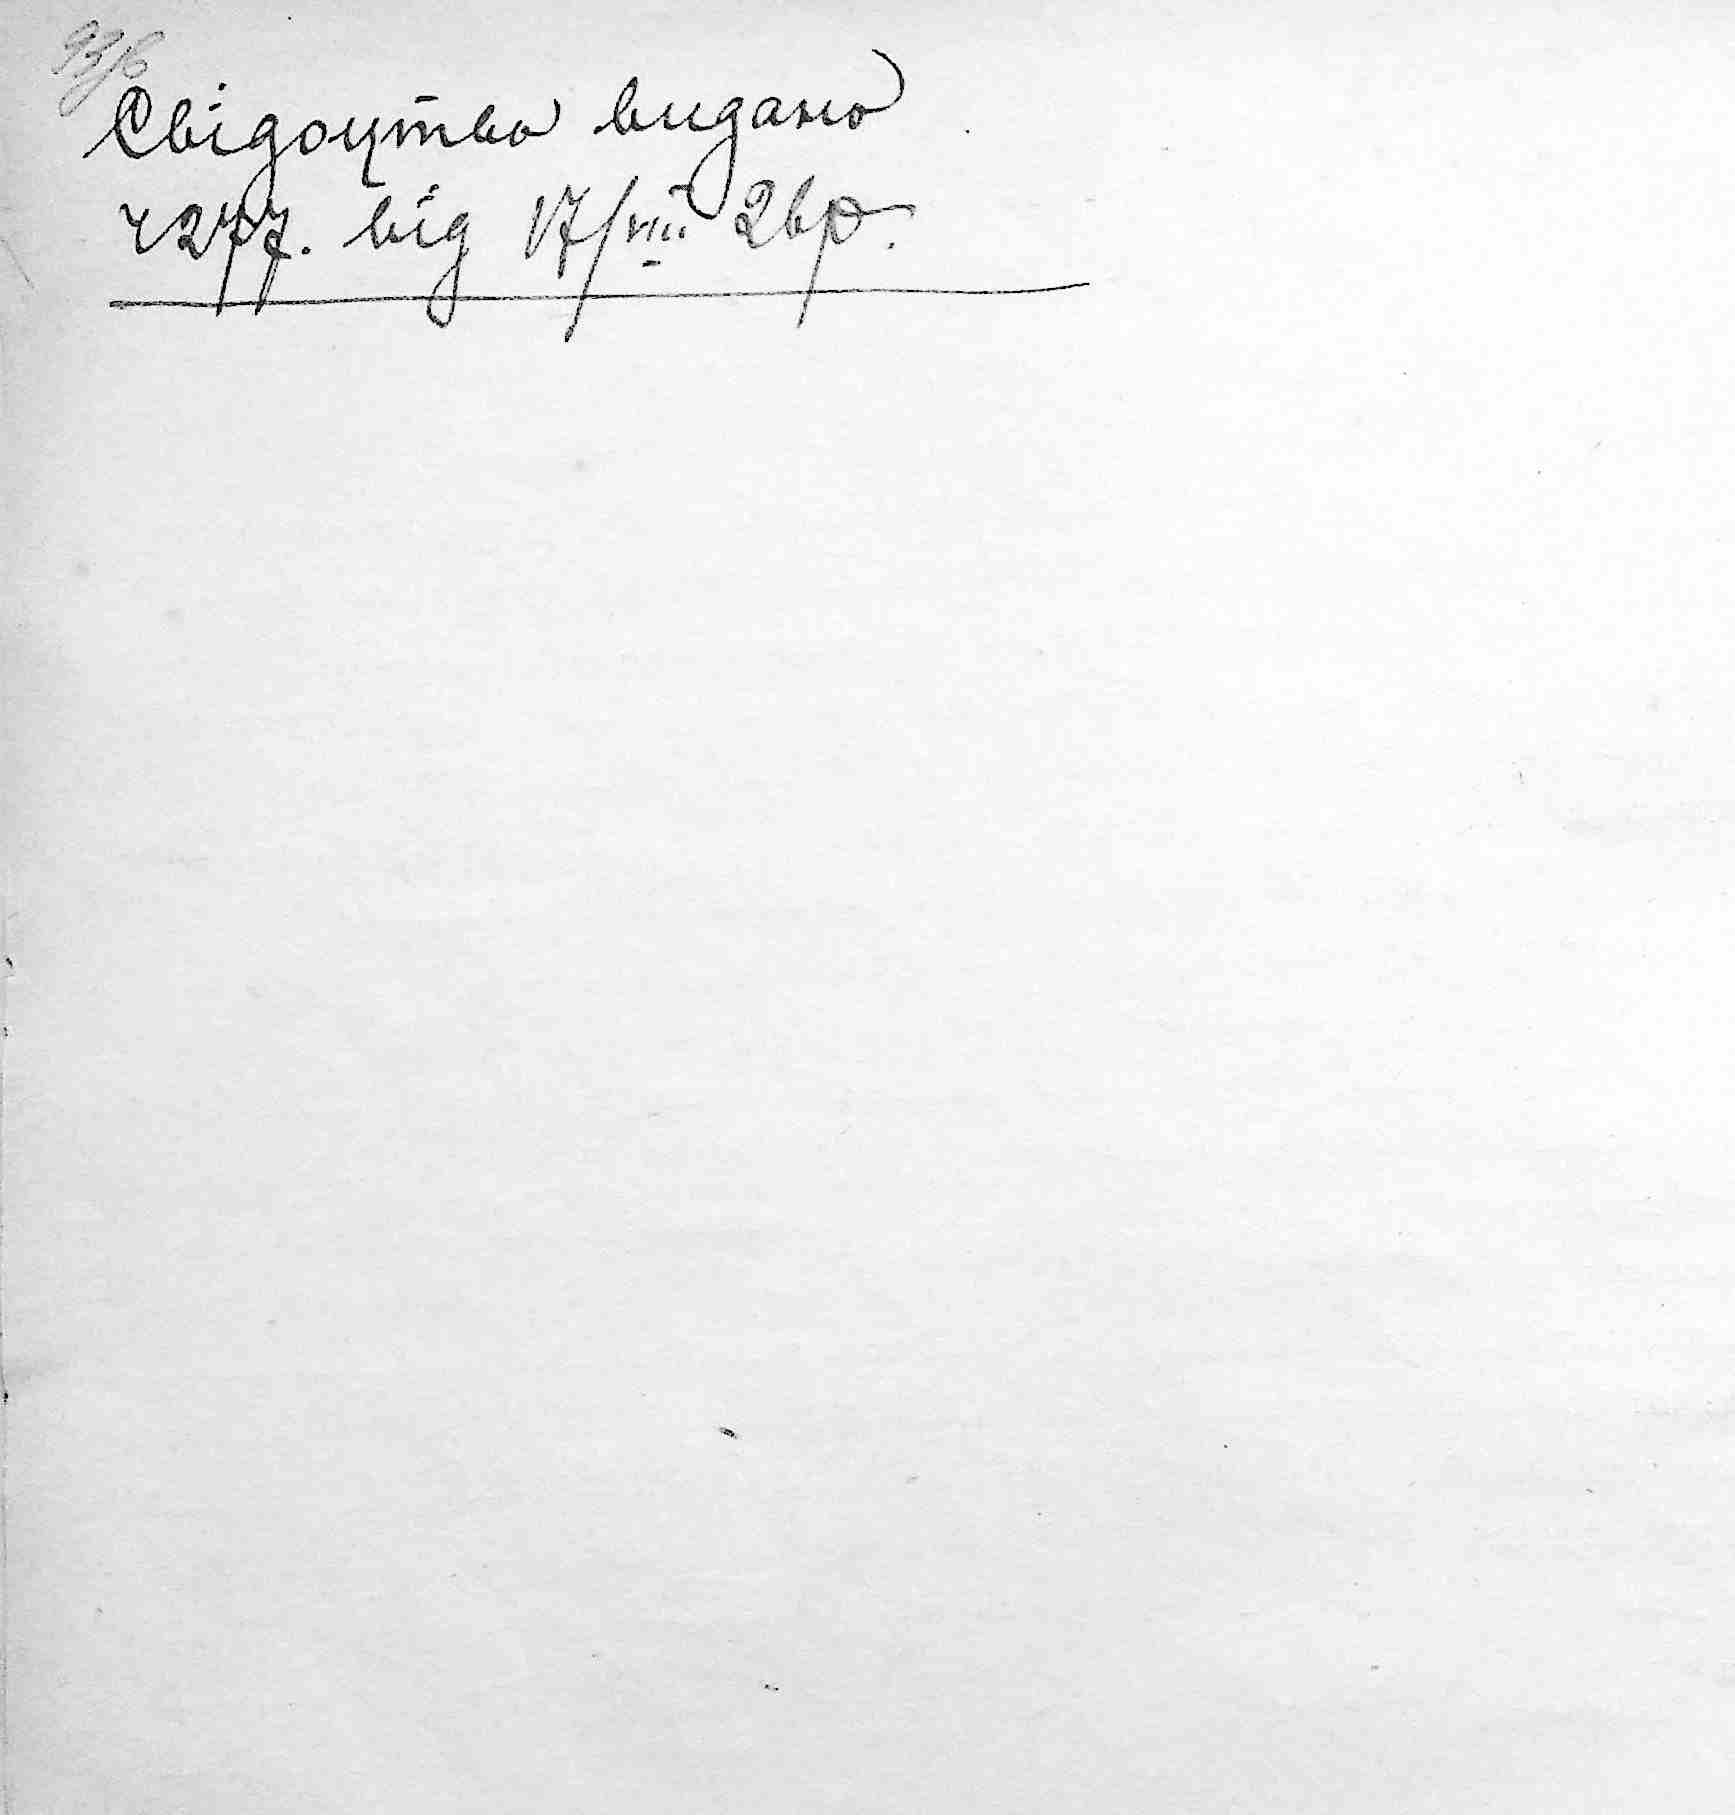 Свідоцтво видано
ч 277. від 17/VIII 26 р.